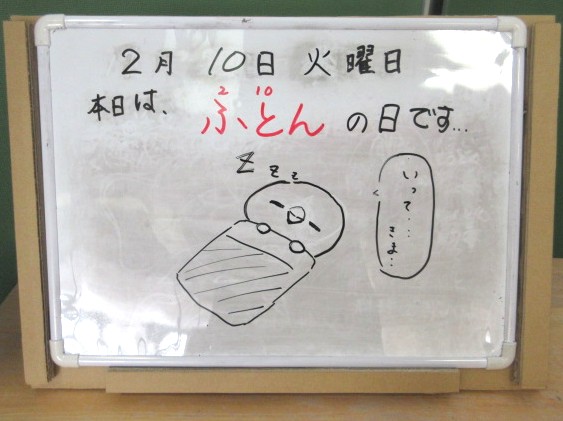 2月 10日 火曜日
2 10
本日は、ふとんの日です…
Z z z
いって…
きま…